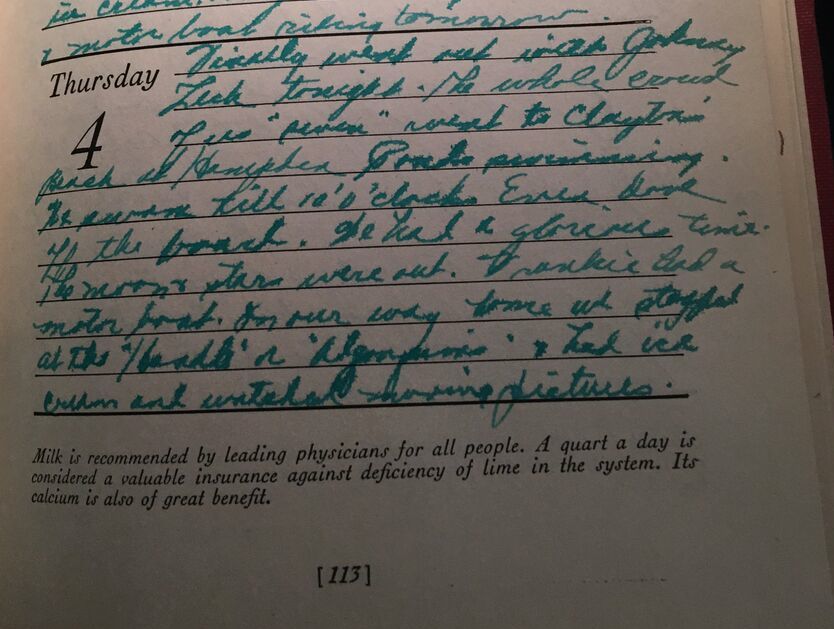 ice cream.
& motor boat riding tomorrow.
Thursday Finally went out with Johnny
tonight. The whole crowd
4 of us "seven" went to Clayton's
at Hampden Ponds swimming.
We swam till 10 o'clock. Even dove
off the. We had a glorious time.
The moon & stars were out. Frankie had a
motor boat. On our way home we stopped
at the or & had ice
cream and watched moving pictures.
Milk is recommended by leading physicians for all people. A quart a day is
considered a valuable insurance against deficiency of lime in the system. Its
calcium is also of great benefit.
[113]